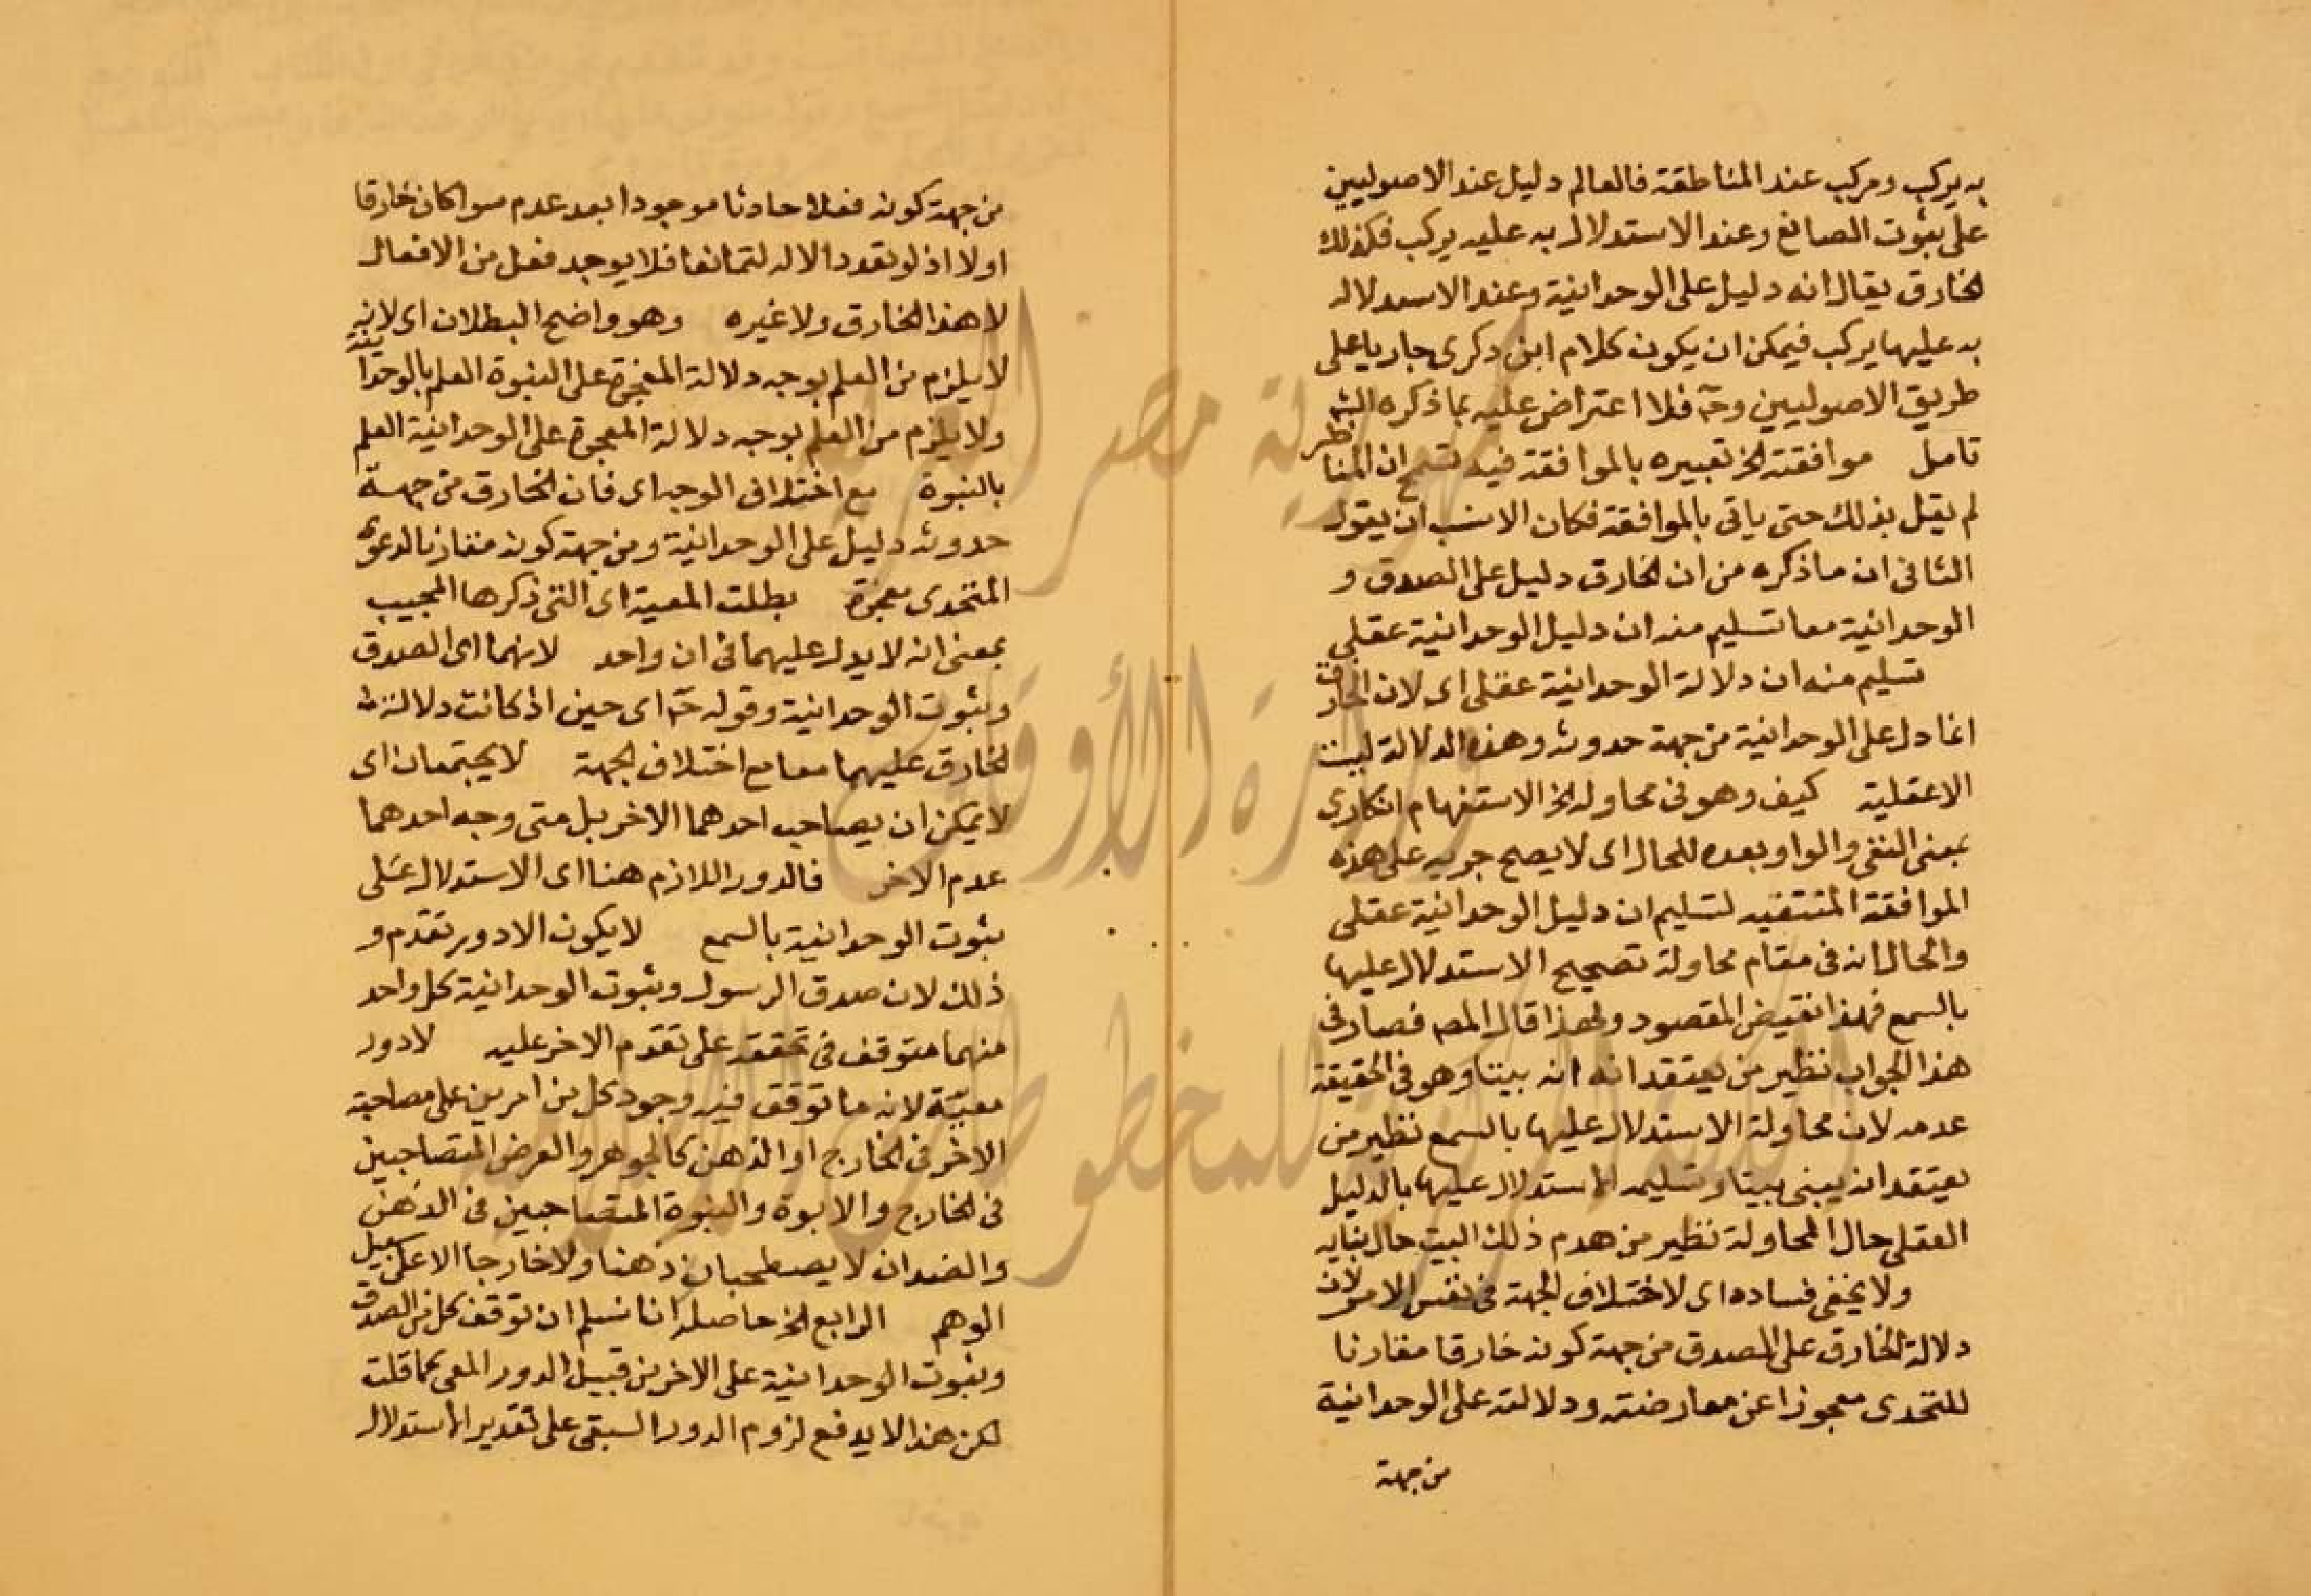 به يركب ومركب عند المناطقة فالعالم دليل عند الاصوليين
على ثبوت الصانع وعند الاستدلال به عليه يركب فكذلك
الخارق يقال انه دليل على الوحدانية وعند الاستدلال
به عليها يركب فيمكن ان يكون كلام ابن ذكرى جاريا على
طريق الاصوليين وح فلا اعتراض عليه بما ذكره الشم
تامل موافقته الخ تعبيره بالموافقة فيه تسمح ان المناظر
لم يقل بذلك حتى ياتى بالموافقة فكان الانسب ان يقول
الثانى ان ما ذكره من ان الخارق دليل على الصدق و
الوحدانية معا تسليم منه ان دليل الوحدانية عقلى
تسليم منه ان دلالة الوحدانية عقلى اى لان الخارق
انما دل على الوحدانية من جهة حدوثه وهذه الدلالة ليست
الا عقلية كيف وهو فى محاوله الخ الاستفهام انكارى
بمعنى النفى والواو بعده للحال اى لا يصح جريه على هذه
الموافقة المقتضيه لتسليم ان دليل الوحدانية عقلى
والحال انه فى مقام محاولة تصحيح الاستدلال عليها
بالسمع فهذا نقيض المقصود ولهذا قال المصـ فصار فى
هذا الجواب نظير من يعتقد انه بيتا وهو فى الحقيقة
عدمه لان محاولة الاستدلال عليها بالسمع نظير من
يعتقد انه يبنى بيتا وتسليمه الاستدلال عليها بالدليل
العقلى حال المحاولة نظير من هدم ذلك البيت حال بنايه
ولا يخفى فساده اى لاختلاف الجهة فى نفس الامر لان
دلالة الخارق على الصدق من جهة كونه خارقا مقارنا
للتحدى معجوزا عن معارضته ودلالته على الوحدانية
من جهة
من جهة كونه فعلا حادثا موجودا بعد عدم سوا كان خارقا
اولا اذ لو تعدد الاله لتمانعا فلا يوجد فعل من الافعال
لا هذا الخارق ولا غيره وهو واضح البطلان اى لانه
لا يلزم من العلم بوجه دلالة المعجزة على النبوة العلم بالوحدانية
ولا يلزم من العلم بوجه دلالة المعجزة على الوحدانية العلم
بالنبوة مع اختلاف الوجه اى فان الخارق من جهة
حدوثه دليل على الوحدانية ومن جهة كونه مقارنا لدعوى
المتحدى معجزة بطلت المعية اى التى ذكرها المجيب
بمعنى انه لا يدل عليهما فى ان واحد لانهما اى الصدق
وثبوت الوحدانية وقوله ح اى حين اذ كانت دلالة
الخارق عليهما معا مع اختلاف الجهة لا يجتمعان اى
لا يمكن ان يصاحب احدهما الاخر بل متى وجد احدهما
عدم الاخر فالدور اللازم هنا اى الاستدلال على
ثبوت الوحدانية بالسمع لا يكون الا دور تقدم و
ذلك لان صدق الرسول وثبوت الوحدانية كل واحد
منهما متوقف فى تحققه على تقدم الاخر عليه لا دور
معيّة لانه ما توقف فيه وجود كل من امرين على مصاحبة
الاخر فى الخارج او الذهن كالجوهر والعرض المتصاحبين
فى الخارج والابوة والبنوة المتصاحبين فى الذهن
والضدان لا يصطحبان ذهنا ولا خارجا الا على سبيل
الوهم الرابع الخ حاصله انا نسلم ان توقف كل من الصدق
وثبوت الوحدانية على الاخر من قبيل الدور المعى كما قلت
لكن هذا لا يدفع لزوم الدور السبقى على تقدير الاستدلال
جمهورية مصر العربية
وزارة الأوقاف